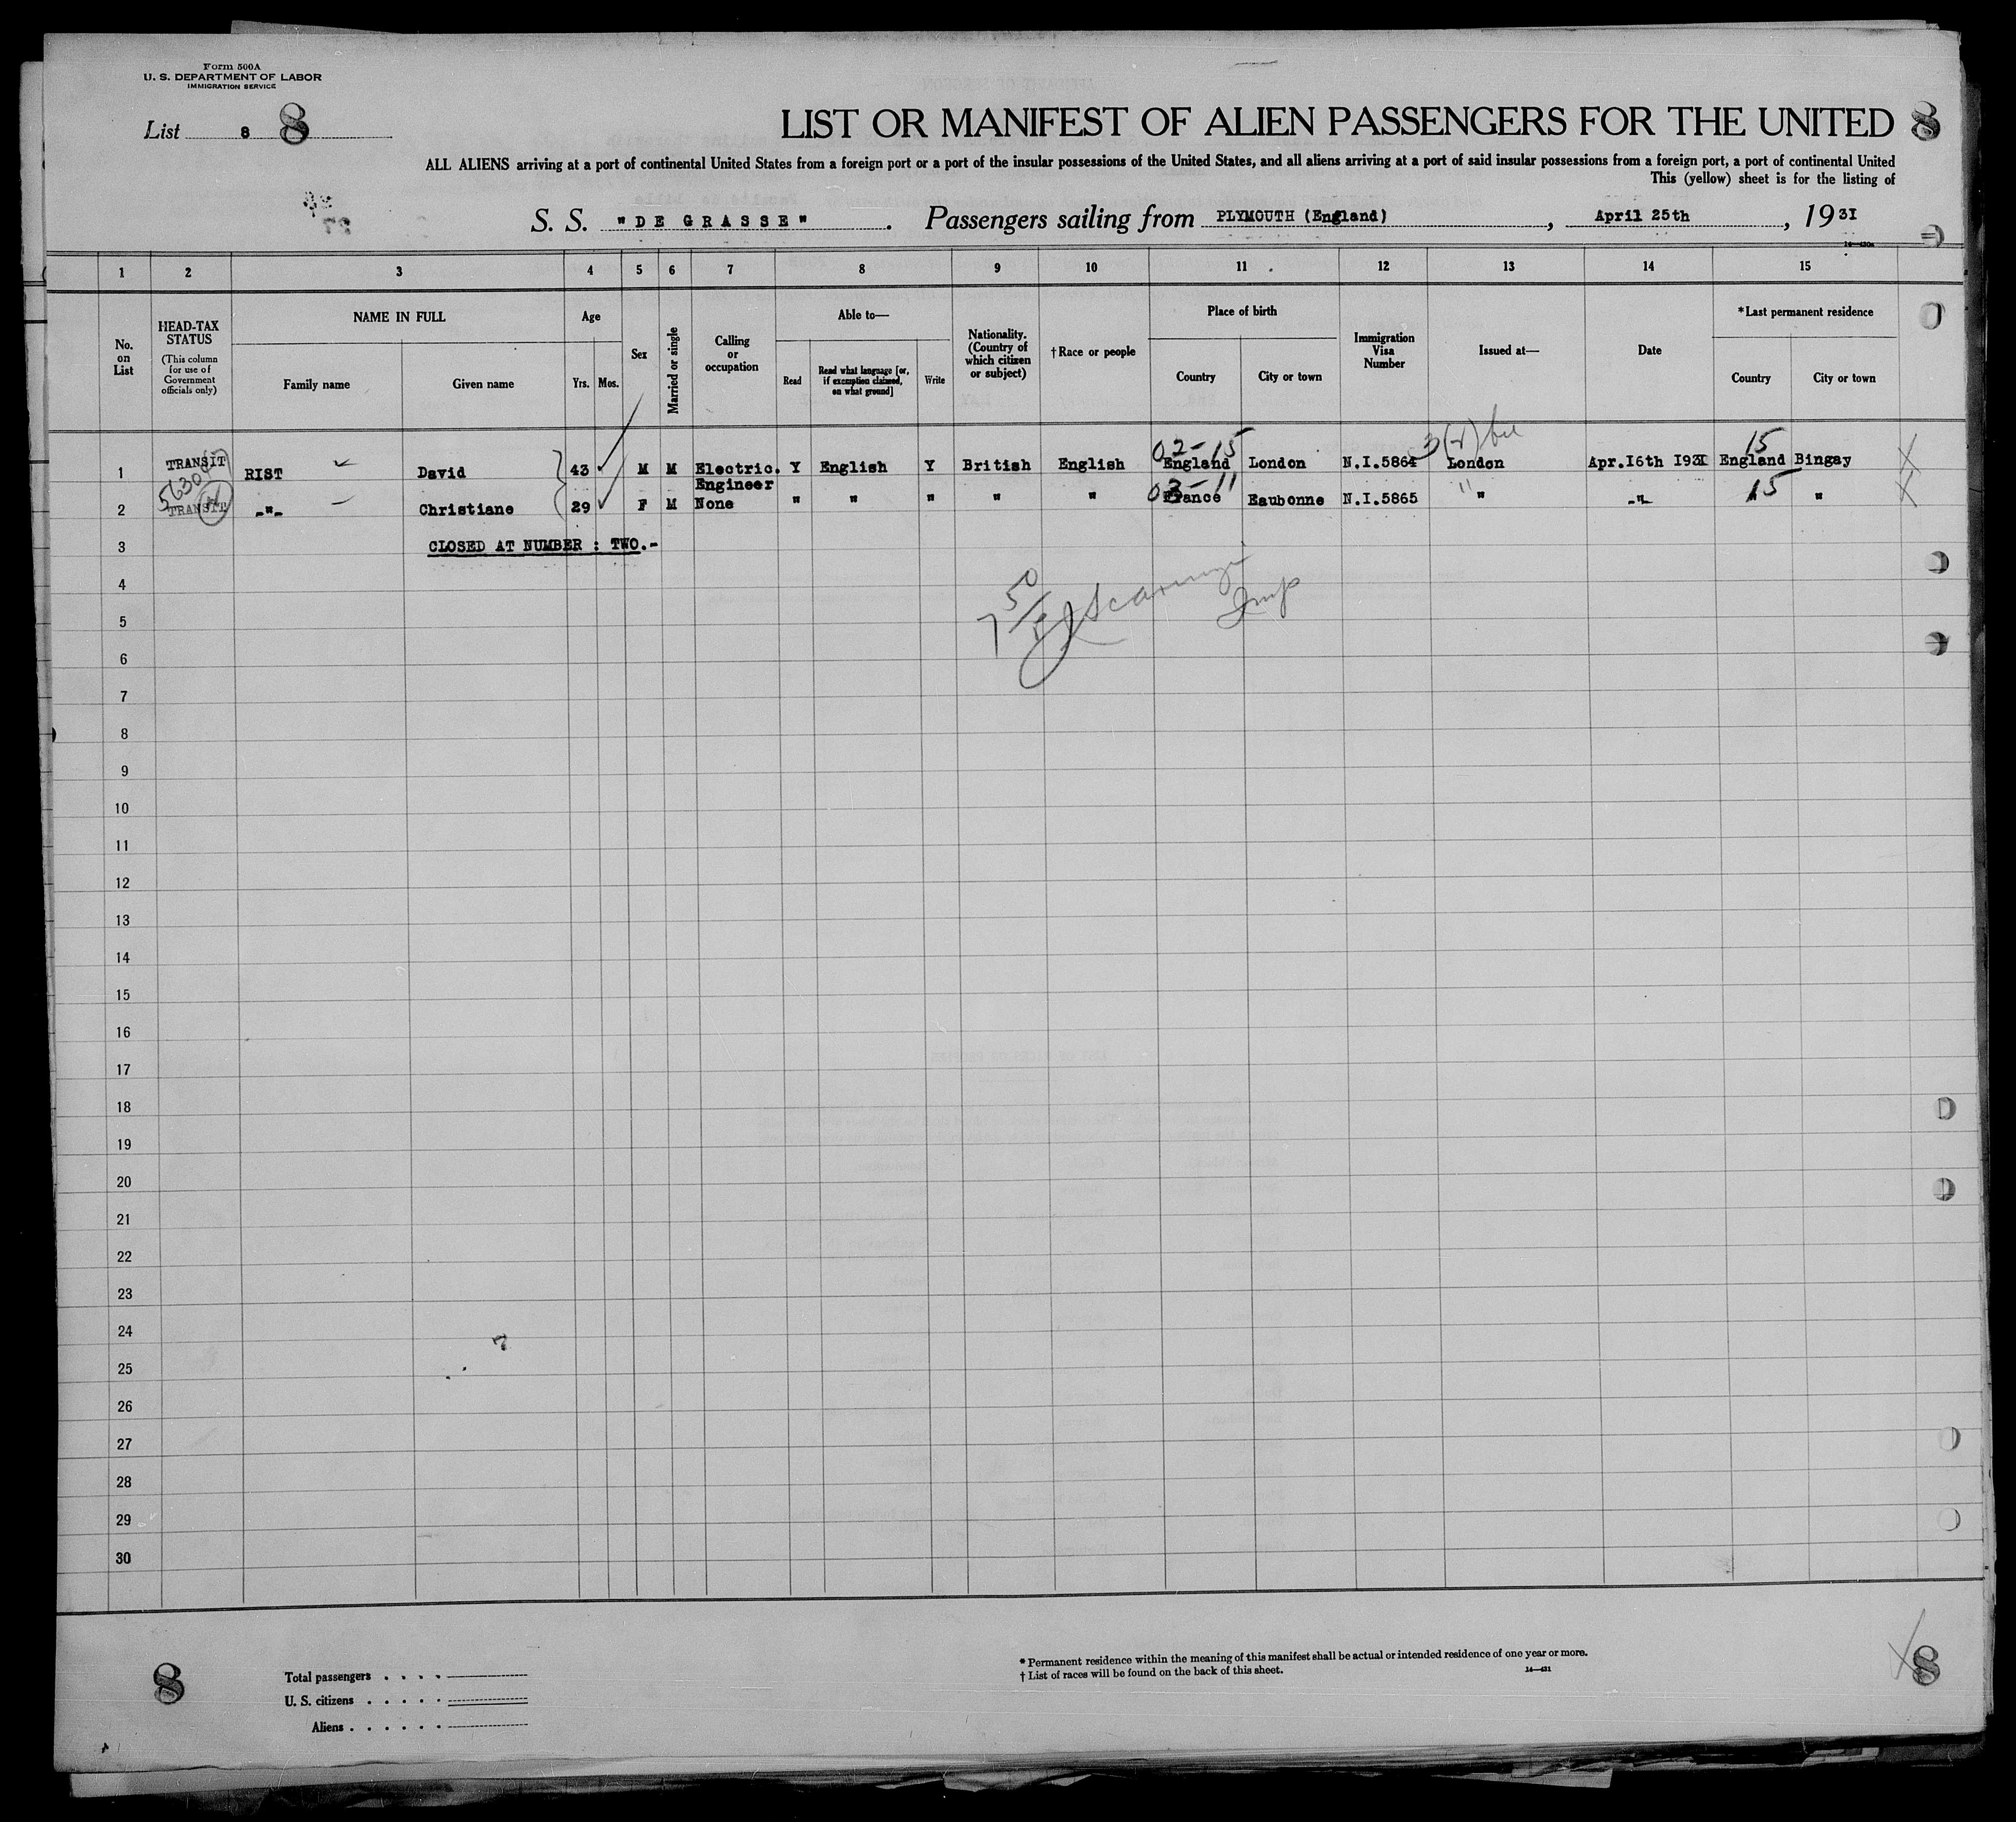 Form 500A
U. S. DEPARTMENT OF LABOR
IMMIGRATION SERVICE
List 8 8
LIST OR MANIFEST OF ALIEN PASSENGERS FOR THE UNITED 8
ALL ALIENS arriving at a port of continental United States from a foreign port or a port of the insular possessions of the United States, and all aliens arriving at a port of said insular possessions from a foreign port, a port of continental United
This (yellow) sheet is for the listing of
S. S. "DE GRASSE". Passengers sailing from PLYMOUTH (England), April 25th, 1931
1 2 3 4 5 6 7 8 9 10 11 12 13 14 15
No. on List
HEAD-TAX STATUS
(This column for use of Government officials only)
NAME IN FULL
Family name
Given name
Age
Yrs. Mos.
Sex
Married or single
Calling or occupation
Able to—
Read
Read what language [or, if exemption claimed, on what ground]
Write
Nationality. (Country of which citizen or subject)
†Race or people
Place of birth
Country
City or town
Immigration Visa Number
Issued at—
Date
*Last permanent residence
Country
City or town
02-15 15
1 TRANSIT RIST David 43 M M Electric. Y English Y British English England London N.I.5864 London Apr.I6th I93I England Bingay
Engineer
03-11 15
2 TRANSIT -"- Christiane 29 F M None " " " " " France Eaubonne N.I.5865 " -"- "
3 CLOSED AT NUMBER : TWO.-
4
5
6
7
8
9
10
11
12
13
14
15
16
17
18
19
20
21
22
23
24
25
26
27
28
29
30
8
Total passengers . . . .
U. S. citizens . . . . .
Aliens . . . . . .
* Permanent residence within the meaning of this manifest shall be actual or intended residence of one year or more.
† List of races will be found on the back of this sheet.
14—431
8